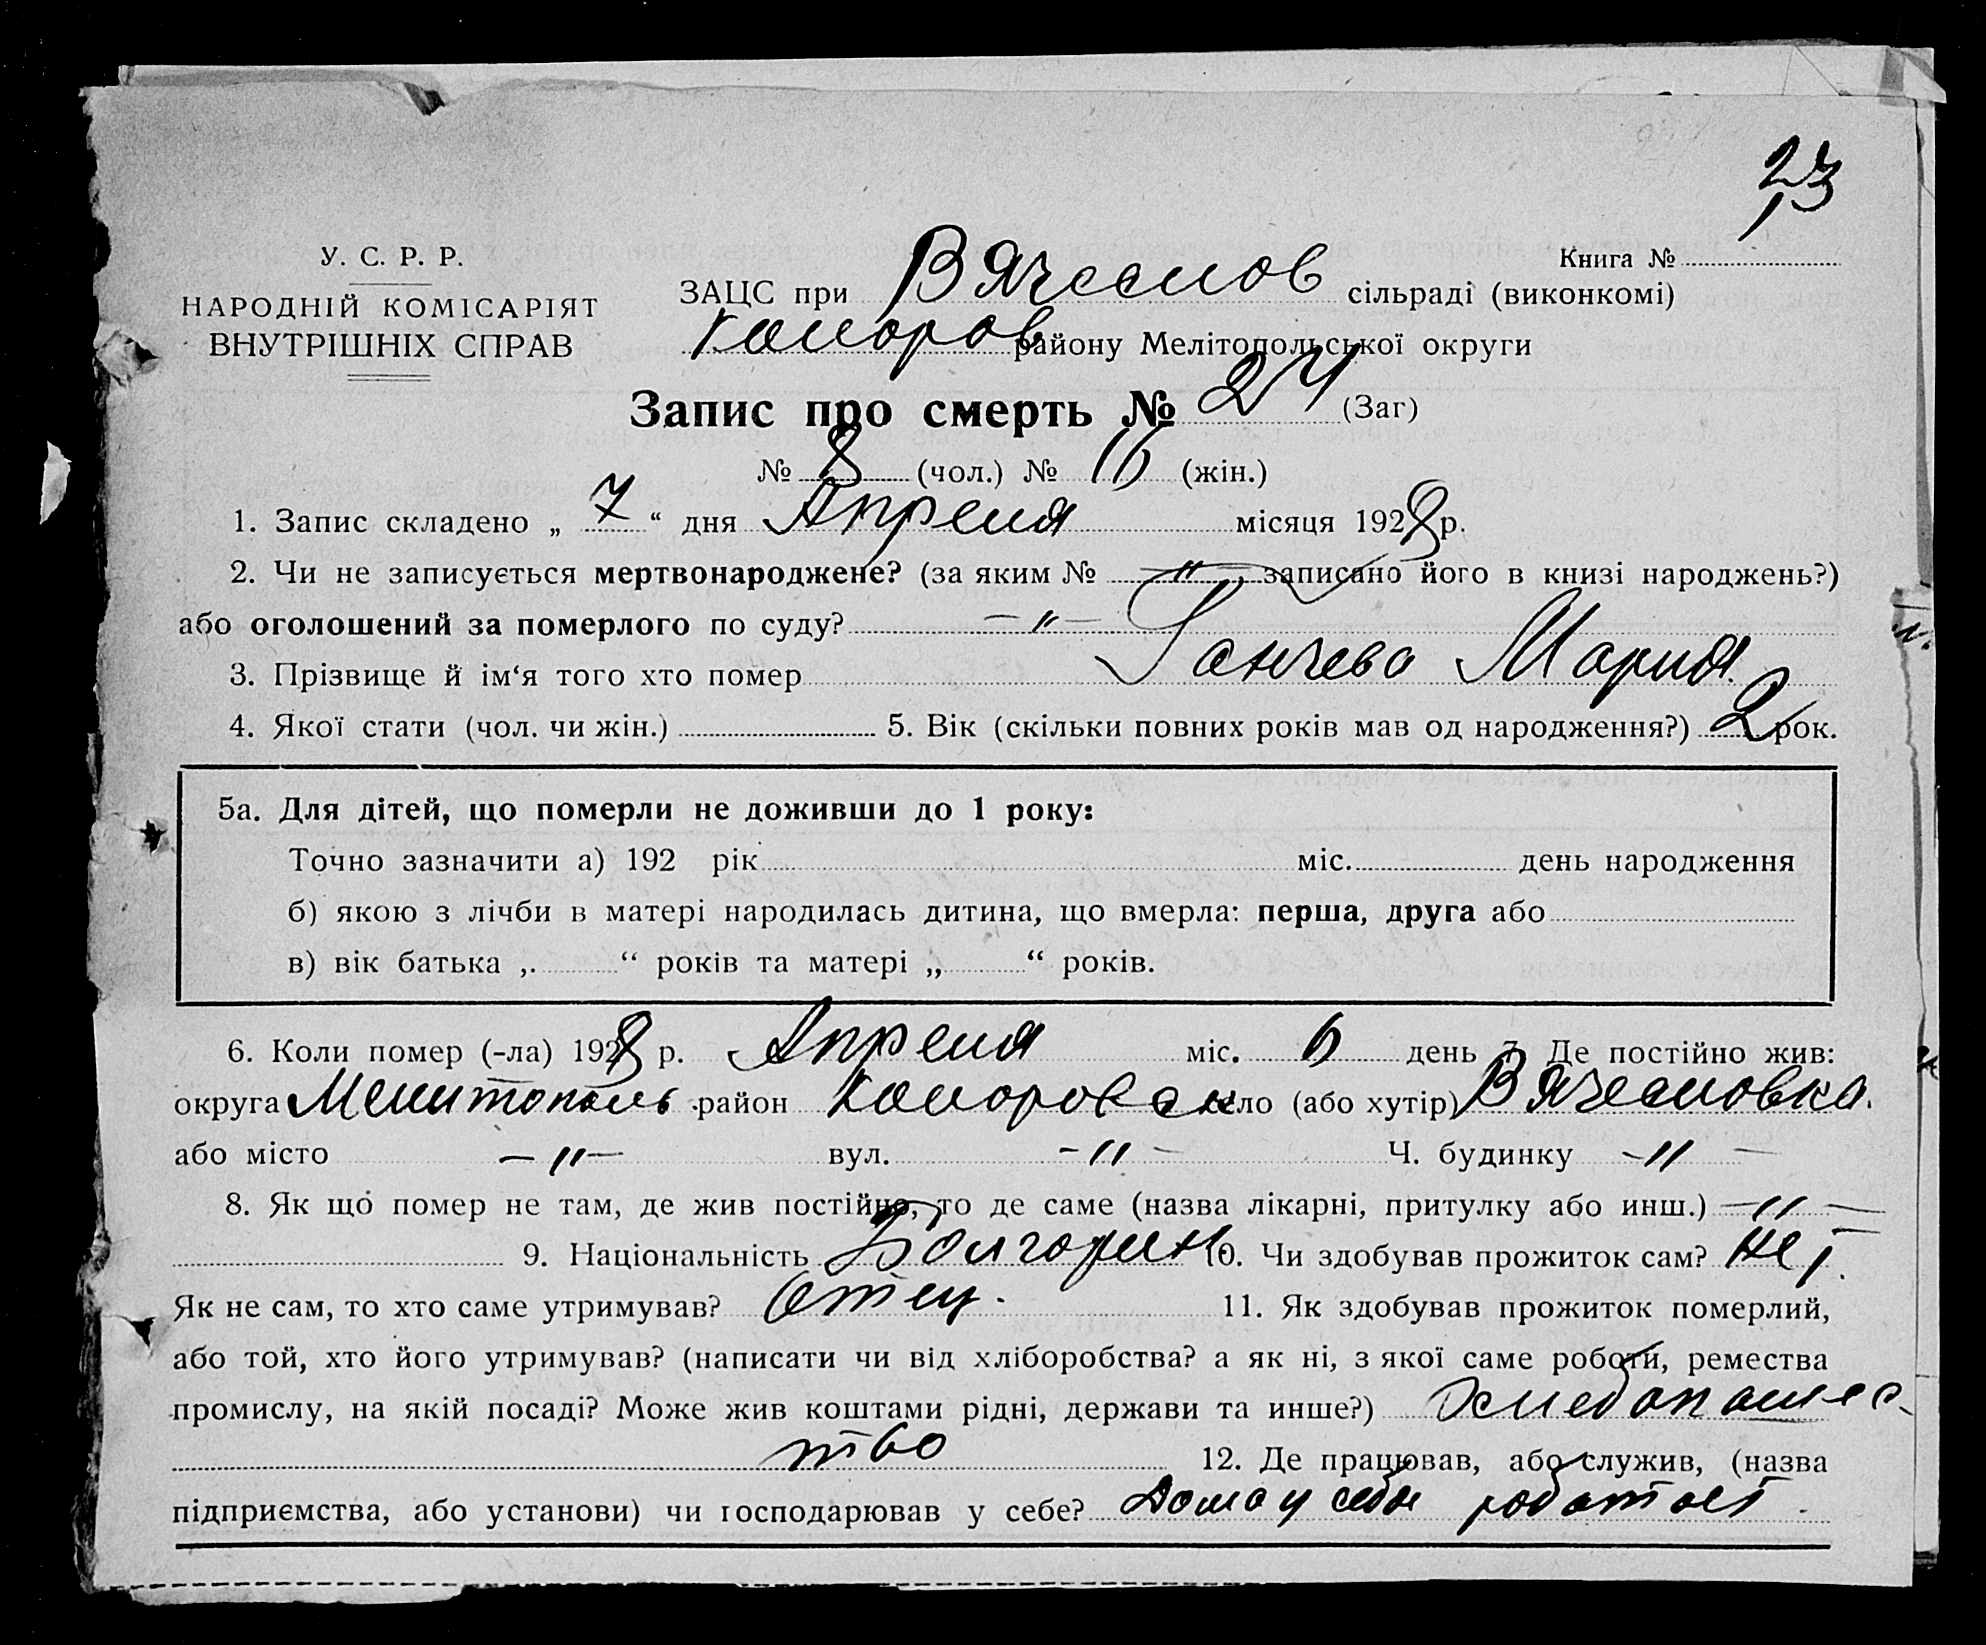 23
У. С. Р. Р.
НАРОДНІЙ КОМІСАРІЯТ
ВНУТРІШНІХ СПРАВ
Книга №
ЗАЦС при Вячеслов сільраді (виконкомі)
Коларов району Мелітопольської округи
Запис про смерть № 24 (Заг)
№ 8 (чол.) № 16 (жін.)
1. Запис складено „ 7 “ дня Апреля місяця 1928 р.
2. Чи не записується мертвонароджене? (за яким № —"— записано його в книзі народжень?)
або оголошений за померлого по суду? —"—
3. Прізвище й ім‘я того хто помер Ганчева Мария.
4. Якої стати (чол. чи жін.) 5. Вік (скільки повних років мав од народження?) 2 рок.
5а. Для дітей, що померли не доживши до 1 року:
Точно зазначити а) 192 рік міс. день народження
б) якою з лічби в матері народилась дитина, що вмерла: перша, друга або
в) вік батька „ “ років та матері „ “ років.
6. Коли помер (-ла) 1928 р. Апреля міс. 6 день 7. Де постійно жив:
округа Мелитополь район Коларовск село (або хутір) Вячеславка.
або місто —"— вул. —"— Ч. будинку —"—
8. Як що помер не там, де жив постійно, то де саме (назва лікарні, притулку або инш.) —"—
9. Національність Болгорин 10. Чи здобував прожиток сам? нет.
Як не сам, то хто саме утримував? Отец. 11. Як здобував прожиток померлий,
або той, хто його утримував? (написати чи від хліборобства? а як ні, з якої саме роботи, ремества
промислу, на якій посаді? Може жив коштами рідні, держави та инше?) Хлебопашес-
тво 12. Де працював, або служив, (назва
підприємства, або установи) чи господарював у себе? Дома у себя работает.